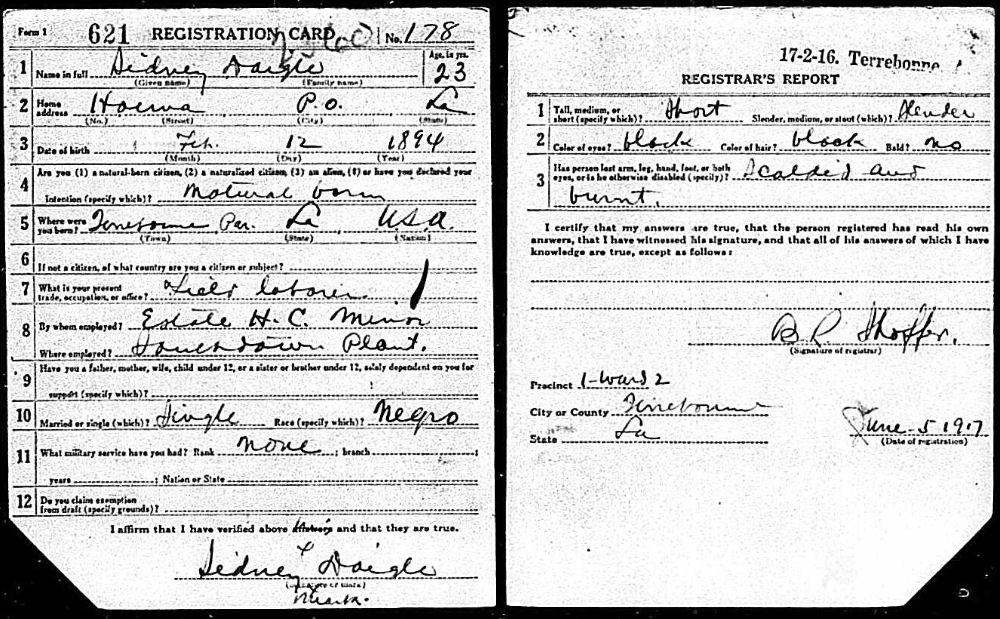 Form 1 621 REGISTRATION CARD No. 178
1 Name in full Sidney Daigle Age, in yrs. 23
(Given name) (Family name)
2 Home address Houma P.O. La
(No.) (Street) (City) (State)
3 Date of birth Feb. 12 1894
(Month) (Day) (Year)
4 Are you (1) a natural-born citizen, (2) a naturalized citizen, (3) an alien, (4) or have you declared your
intention (specify which)? Natural born
5 Where were you born? Terrebonne Par. La U.S.A.
(Town) (State) (Nation)
6 If not a citizen, of what country are you a citizen or subject?
7 What is your present trade, occupation, or office? Field laborer 1
8 By whom employed? Estate H. C. Minor
Where employed? Southdown Plant.
9 Have you a father, mother, wife, child under 12, or a sister or brother under 12, solely dependent on you for
support (specify which)?
10 Married or single (which)? Single Race (specify which)? Negro
11 What military service have you had? Rank none ; branch ;
years ; Nation or State
12 Do you claim exemption from draft (specify grounds)?
I affirm that I have verified above answers and that they are true.
Sidney x Daigle
(Signature or mark)
Mark.
17-2-16. Terrebonne
REGISTRAR'S REPORT
1 Tall, medium, or short (specify which)? Short Slender, medium, or stout (which)? Slender
2 Color of eyes? black Color of hair? black Bald? no
3 Has person lost arm, leg, hand, foot, or both eyes, or is he otherwise disabled (specify)? Scalded and
burnt.
I certify that my answers are true, that the person registered has read his own
answers, that I have witnessed his signature, and that all of his answers of which I have
knowledge are true, except as follows:
B. R. Shoffer.
(Signature of registrar)
Precinct 1-Ward 2
City or County Terrebonne
State La
June-5 1917
(Date of registration)